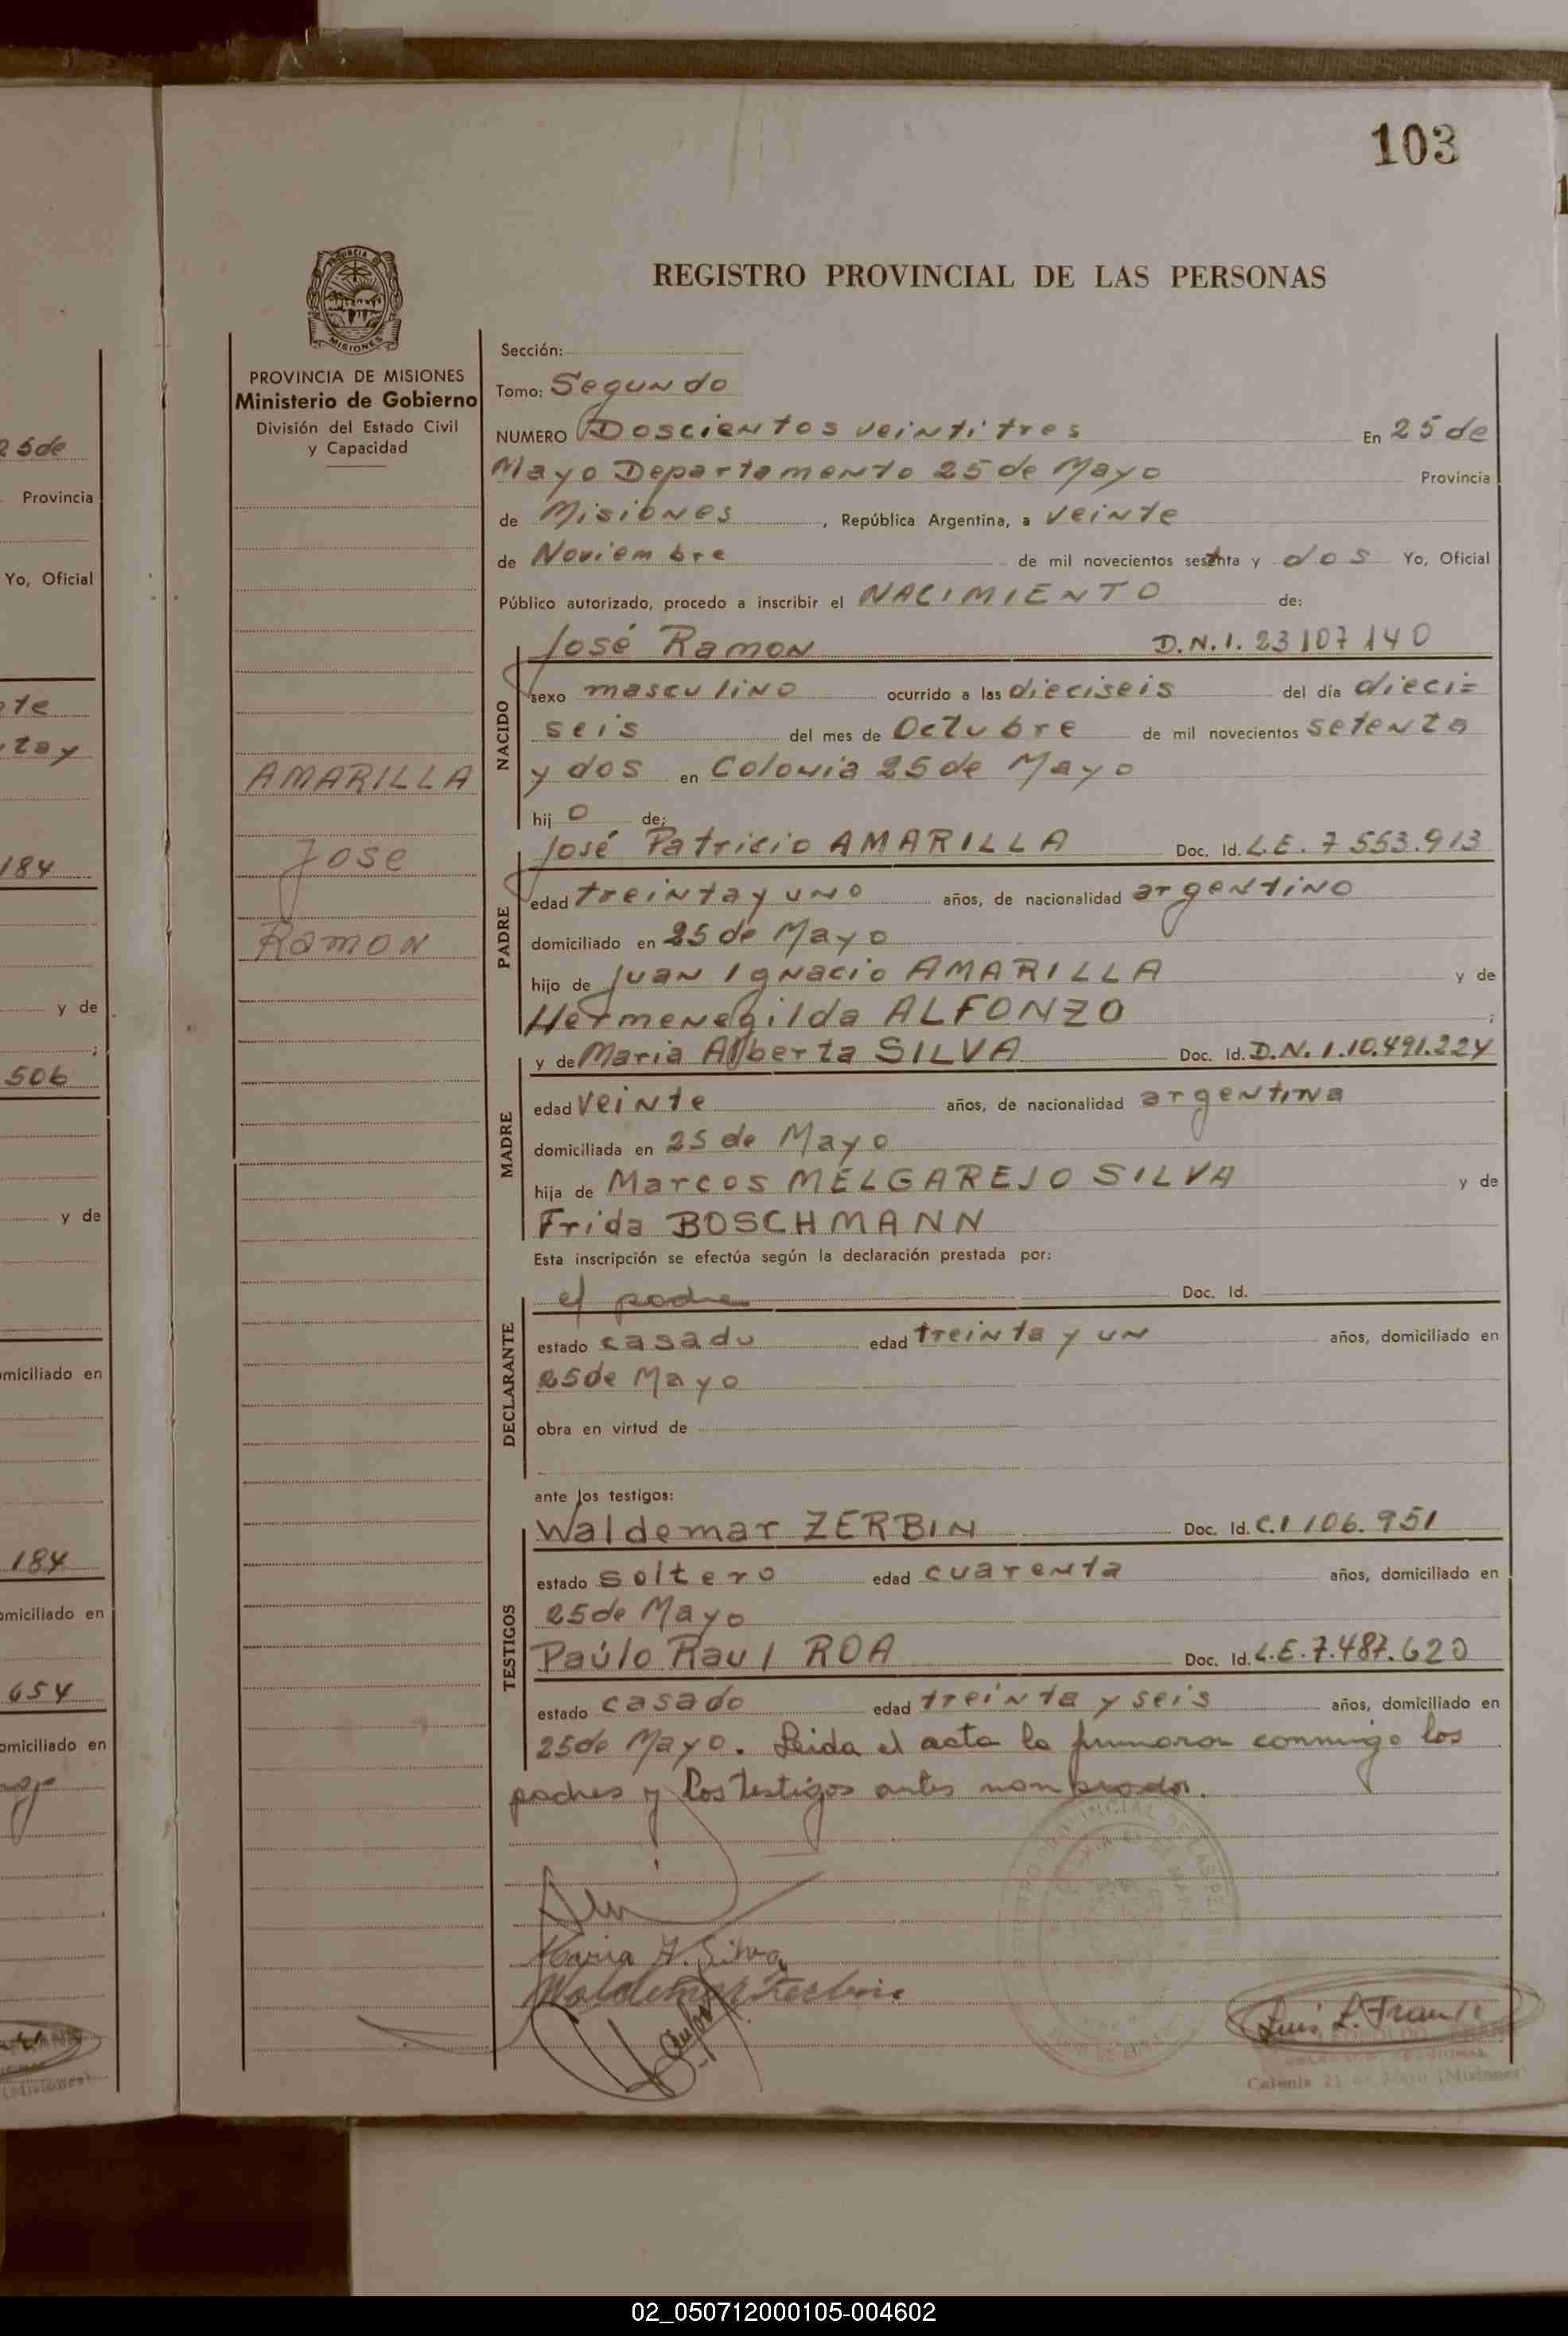 103
REGISTRO PROVINCIAL DE LAS PERSONAS
PROVINCIA DE MISIONES
Ministerio de Gobierno
División del Estado Civil
y Capacidad
AMARILLA
Jose
Ramon
Sección:
Tomo: Segundo
NUMERO Doscientos veintitres En 25 de
Mayo Departamento 25 de Mayo Provincia
de Misiones, República Argentina, a veinte
de Noviembre de mil novecientos setenta y dos Yo, Oficial
Público autorizado, procedo a inscribir el NACIMIENTO de:
NACIDO
José Ramon D.N.I. 23107140
sexo masculino ocurrido a las dieciseis del día dieci=
seis del mes de Octubre de mil novecientos setenta
y dos en Colonia 25 de Mayo
hijo de:
PADRE
José Patricio AMARILLA Doc. Id. L.E. 7553.913
edad treinta y uno años, de nacionalidad argentino
domiciliado en 25 de Mayo
hijo de Juan Ignacio AMARILLA y de
Hermenegilda ALFONZO ;
MADRE
y de Maria Alberta SILVA Doc. Id. D.N.I. 10.491.224
edad veinte años, de nacionalidad argentina
domiciliada en 25 de Mayo
hija de Marcos MELGAREJO SILVA y de
Frida BOSCHMANN
Esta inscripción se efectúa según la declaración prestada por:
DECLARANTE
el padre Doc. Id.
estado casado edad treinta y un años, domiciliado en
25 de Mayo
obra en virtud de
ante los testigos:
TESTIGOS
Waldemar ZERBIN Doc. Id. C.I 106.951
estado soltero edad cuarenta años, domiciliado en
25 de Mayo
Paúlo Raul ROA Doc. Id. L.E. 7.487.620
estado casado edad treinta y seis años, domiciliado en
25 de Mayo. Leida el acta la firmaron conmigo los
padres y los testigos antes nombrados.
Maria A. Silva
Waldemar Zerbin
Luis L. Frank
Colonia 25 de Mayo (Misiones)
25 de
Provincia
Yo, Oficial
184
y de
;
506
y de
184
omiciliado en
654
omiciliado en
02_050712000105-004602